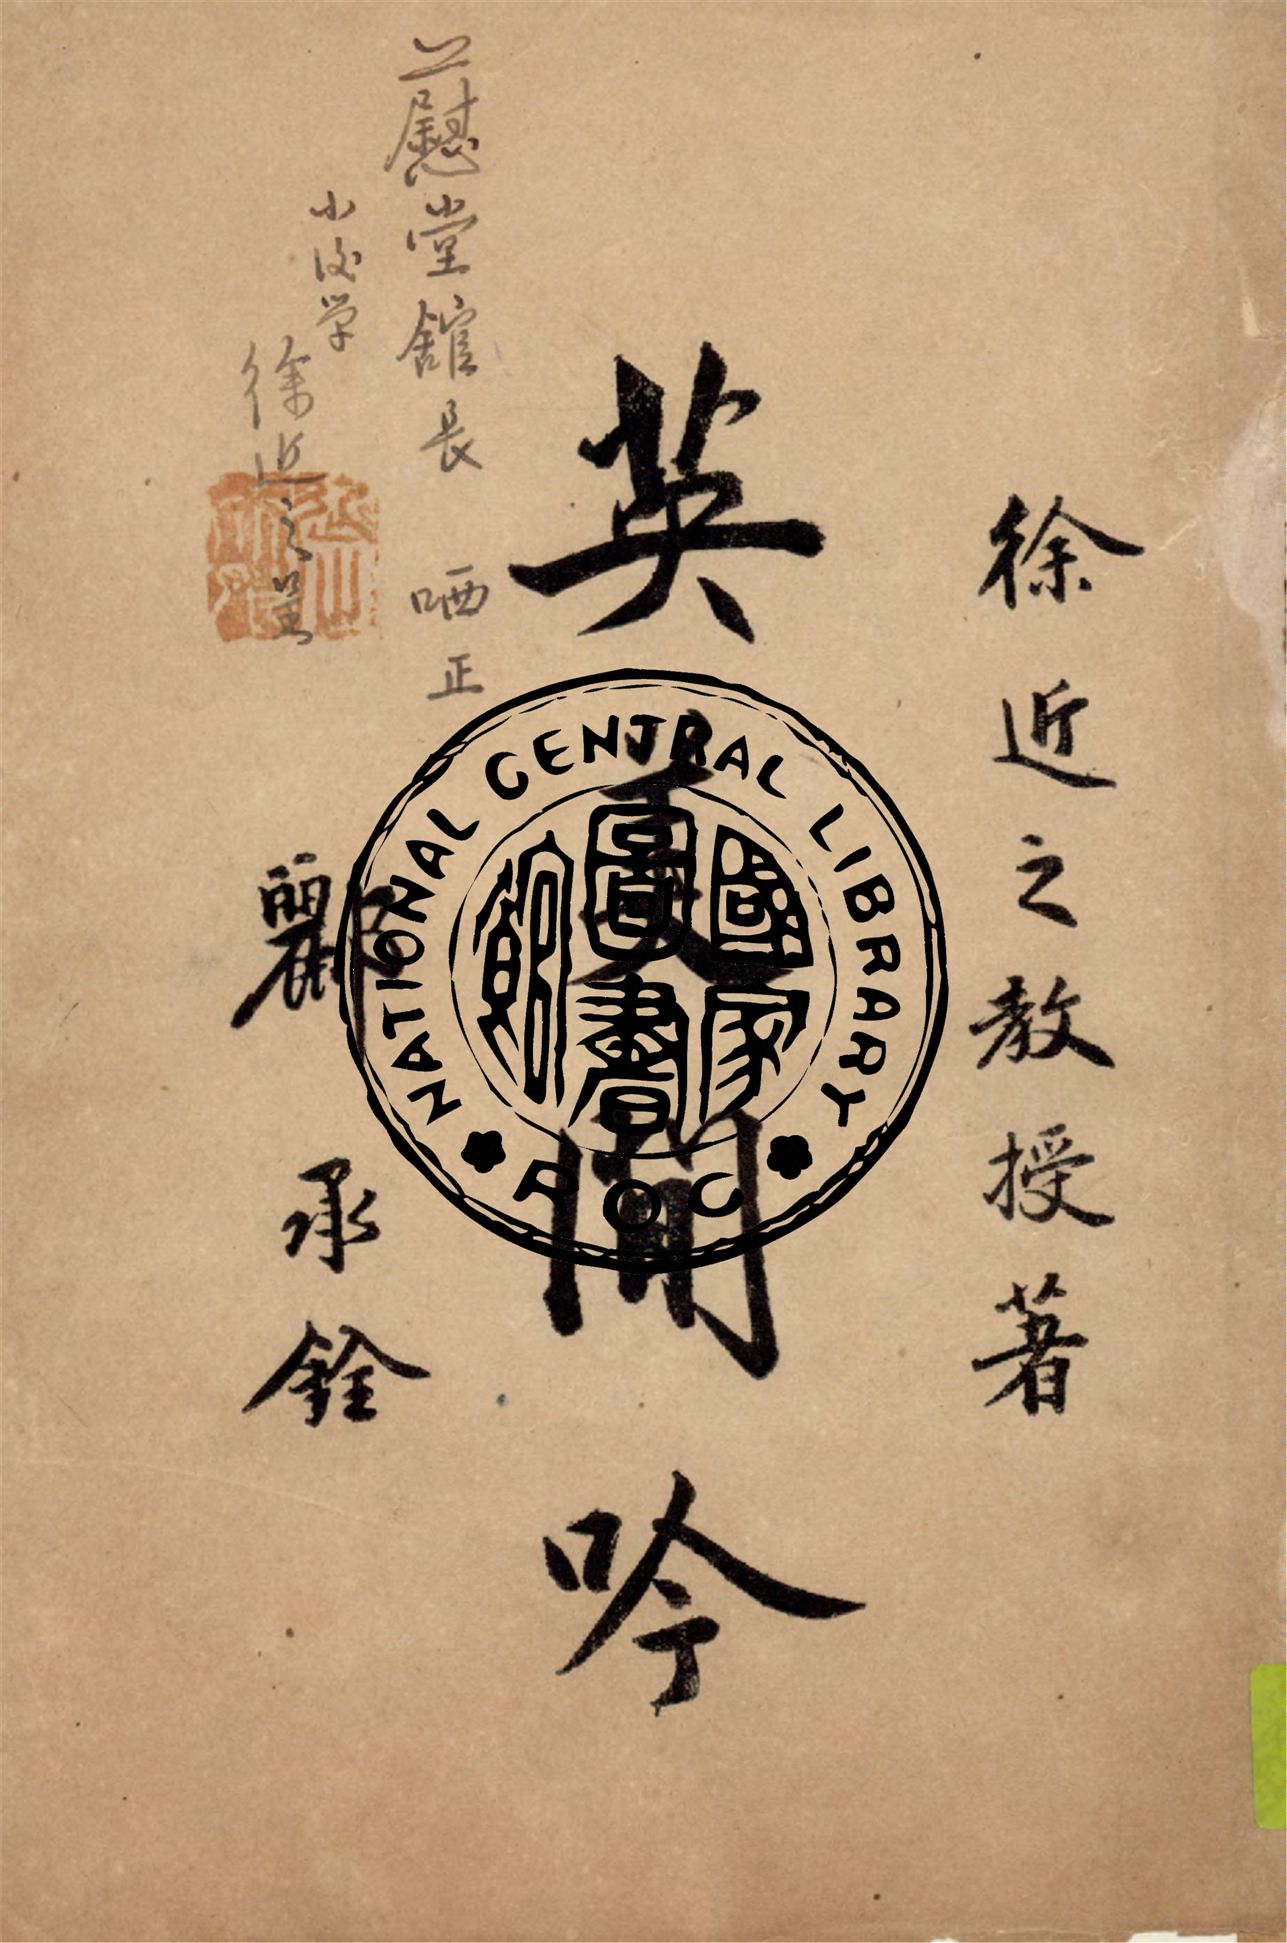 徐近之教授著
英 閒吟
酈承銓
上慰堂館長 哂正
小後学 徐近之呈
NATIONAL CENTRAL LIBRARY
國家圖書館
ROC